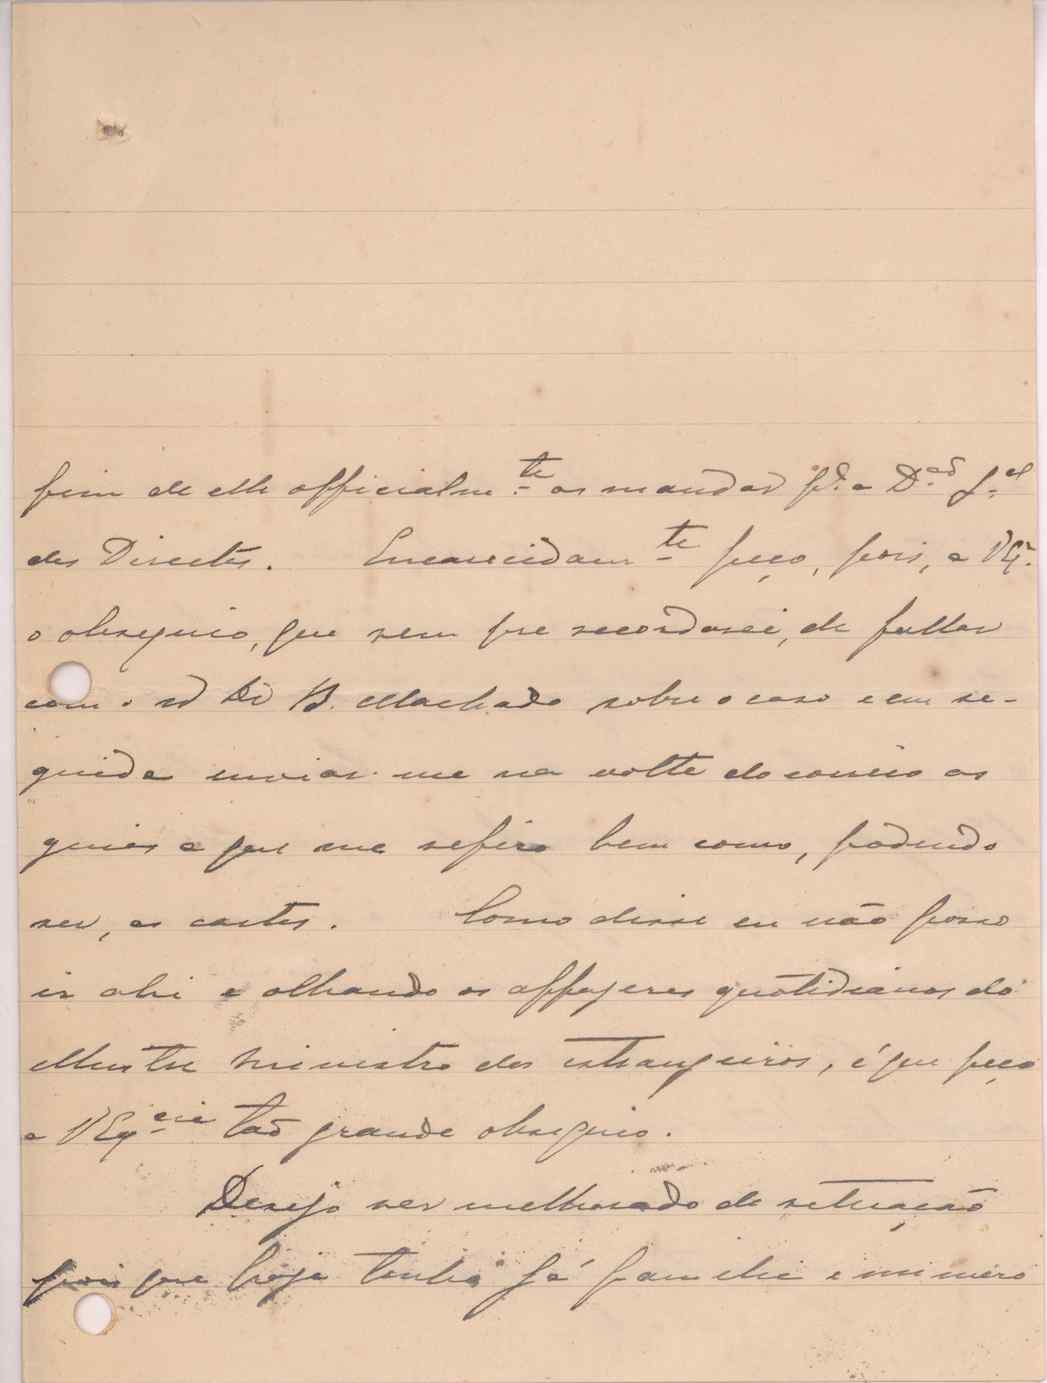 fim de elle officialm.te os mandar p.ª a D.ção G.al
dos Directos. Encarecidam.te peço, pois, a VEx.ª
o obsequio, que sempre recordarei, de fallar
com o sr Dr B. Machado sobre o caso e em se-
guida enviar-me na volta do correio as
guias a que me refiro bem como, podendo
ser, as cartas. Como disse eu não posso
ir ahi e olhando os affazeres quotidianos do
illustre Ministro dos estrangeiros, é que peço
a VEx.cia tão grande obsequio.
Desejo ser melhorado de situação
pois que hoje tenho já familia e